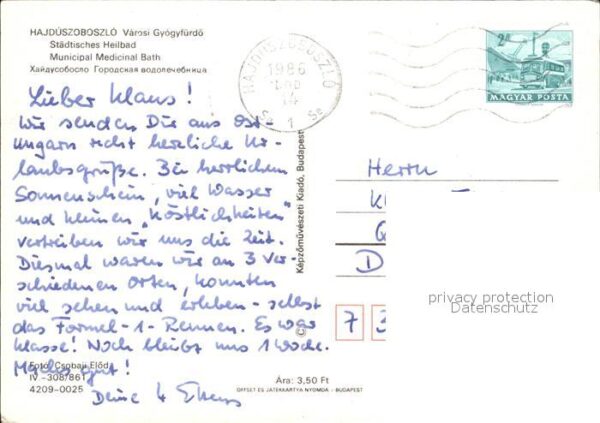 HAJDÚSZOBOSZLÓ Városi Gyógyfürdő
Städtisches Heilbad
Municipal Medicinal Bath
Хайдусобосло Городская водолечебница
Lieber Klaus!
Wir senden Dir aus Ost-
ungarn recht herzliche Ur-
laubsgrüße. Bei herrlichem
Sonnenschein, viel Wasser
und kleinen "Köstlichkeiten"
vertreiben wir uns die Zeit.
Diesmal waren wir an 3 ver-
schiedenen Orten, konnten
viel sehen und erleben - selbst
das Formel-1-Rennen. Es war
klasse! Noch bleibt uns 1 Woche.
Mach's gut!
Foto: Csobaji Előd
IV -308/861
4209-0025
Ára: 3,50 Ft
OFFSET ÉS JÁTÉKKÁRTYA NYOMDA - BUDAPEST
© Képzőművészeti Kiadó, Budapest
HAJDÚSZOBOSZLÓ
1986
1
2 Ft
MAGYAR POSTA
Herrn
K
D
7 3
privacy protection
Datenschutz